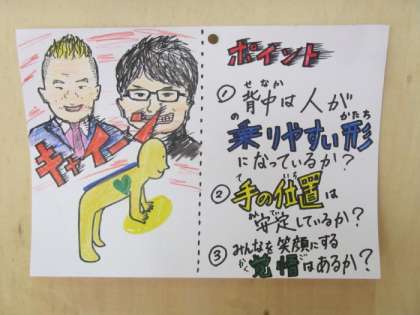 キャイーン
ポイント
① 背中は人が
せなか
乗りやすい形
の かたち
になっているか?
② 手の位置は
て いち
安定しているか?
あんてい
③ みんなを笑顔にする
覚悟はあるか?
かくご